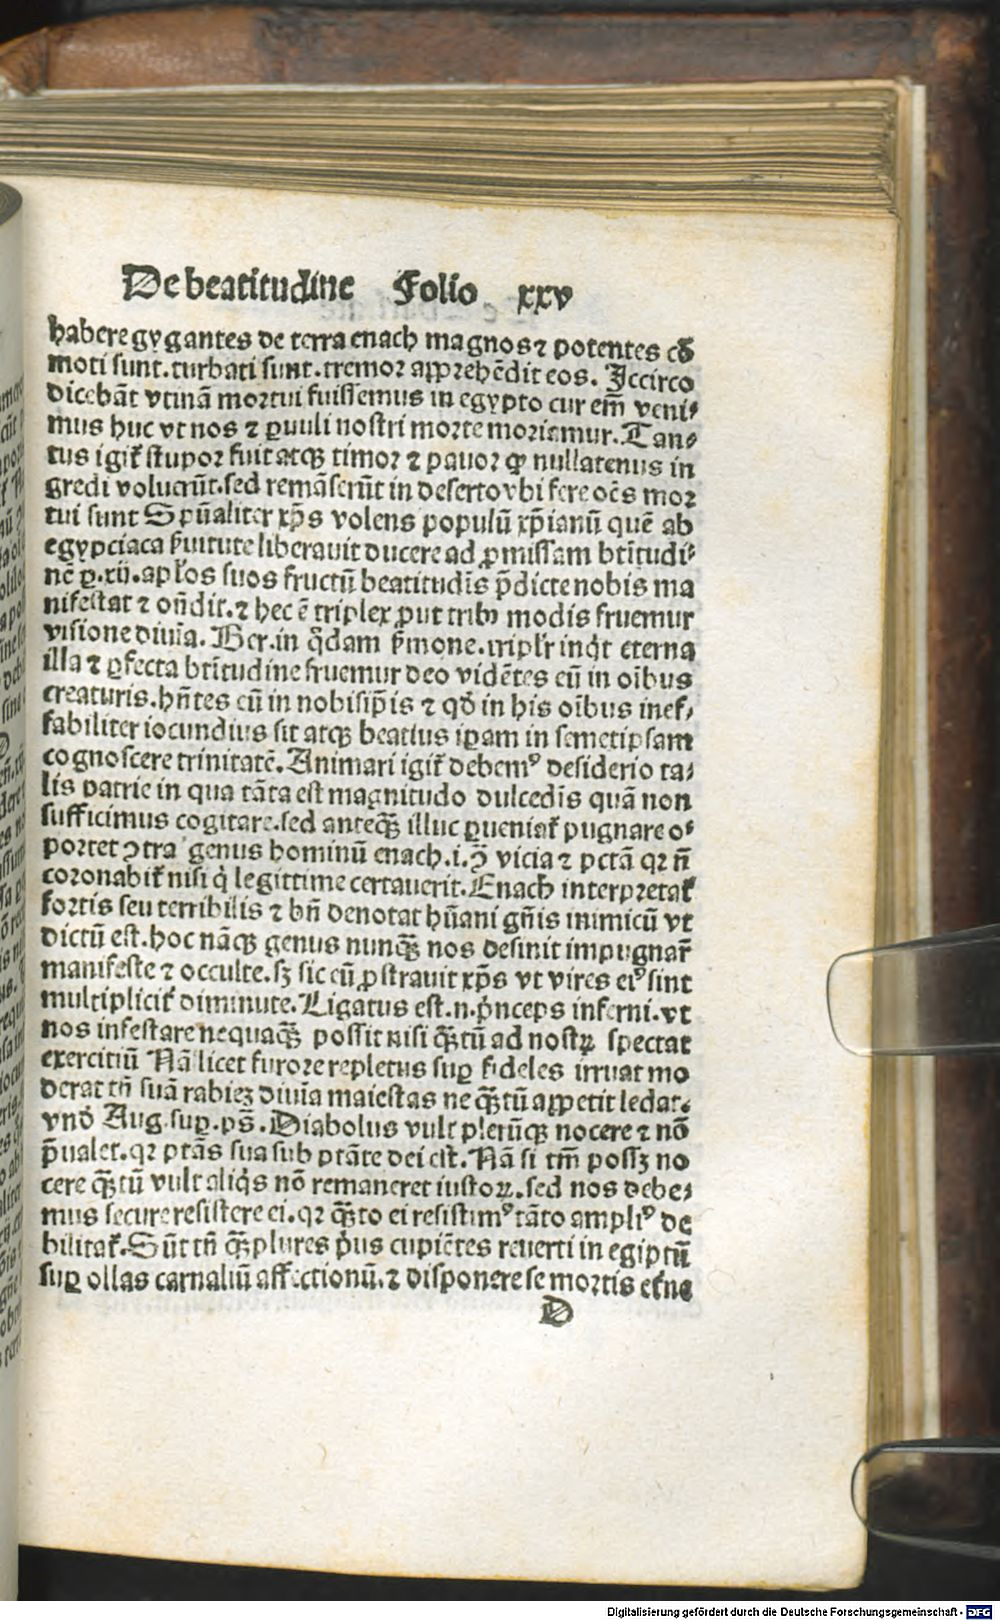 De beatitudine Folio xxv
habere gygantes de terra enach magnos ⁊ potentes cō
moti sunt. turbati sunt. tremor apprehēdit eos. Iccirco
dicebāt vtinā mortui fuissemus in egypto cur em̄ veni⸗
mus huc vt nos ⁊ ꝑuuli nostri morte moriamur. Tan⸗
tus igit̄ stupor fuit atqꝫ timor ⁊ pauor ꝙ nullatenus in
gredi voluerūt. sed remāserūt in deserto vbi fere oēs mor
tui sunt Spūaliter xp̄s volens populū xp̄ianū quē ab
egypciaca ẜuitute liberauit ducere ad ꝓmissam btītudi⸗
nē ꝑ. xij. apl'os suos fructū beatitudīs p̄dicte nobis ma
nifestat ⁊ on̄dit. ⁊ hec ē triplex ꝓut tribꝰ modis fruemur
visione diuīa. Ber. in q̄dam ẜmone. tripl'r inq̇t eterna
illa ⁊ ꝑfecta btītudine fruemur deo vidētes eū in oībus
creaturis. hn̄tes eū in nobis ip̄is ⁊ qḋ in his oībus inef⸗
fabiliter iocundius sit atqꝫ beatius ip̄am in semetipsam
cognoscere trinitatē. Animari igit̄ debemꝰ desiderio ta⸗
lis patrie in qua tāta est magnitudo dulcedīs quā non
sufficimus cogitare. sed anteqꝫ̄ illuc ꝑueniat̄ pugnare o⸗
portet ꝯtra genus hominū enach. i. ꝯ̄ vicia ⁊ pctā qꝛ n̄
coronabit̄ nisi q̇ legittime certauerit. Enach interpretat̄
fortis seu terribilis ⁊ bn̄ denotat hūani gn̄is inimicū vt
dictū est. hoc nāqꝫ genus nunqꝫ̄ nos desinit impugnar̄
manifeste ⁊ occulte. sꝫ sic eū ꝓstrauit xp̄s vt vires eiꝰ sint
multiplicit̄ diminute. Ligatus est. n. ṗnceps inferni. vt
nos infestare nequaqꝫ̄ possit nisi qꝫ̄tū ad nostꝝ spectat
exercitiū Nā licet furore repletus suꝑ fideles irruat mo
derat tn̄ suā rabieꝫ diuīa maiestas ne qꝫ̄tū appetit ledat.
vnḋ Aug. suꝑ. ps̄. Diabolus vult plerūqꝫ nocere ⁊ nō
p̄ualet. qꝛ ptās sua sub ptāte dei est. Nā si tm̄ possꝫ no
cere qꝫ̄tū vult aliq̇s nō remaneret iustoꝝ. sed nos debe⸗
mus secure resistere ei. qꝛ qꝫ̄to ei resistimꝰ tāto ampliꝰ de
bilitat̄. Sūt tn̄ qꝫ̄plures ṗus cupiētes reuerti in egiptū
suꝑ ollas carnaliū affectionū. ⁊ disponere se mortis et̄ne
D
Digitalisierung gefördert durch die Deutsche Forschungsgemeinschaft - DFG